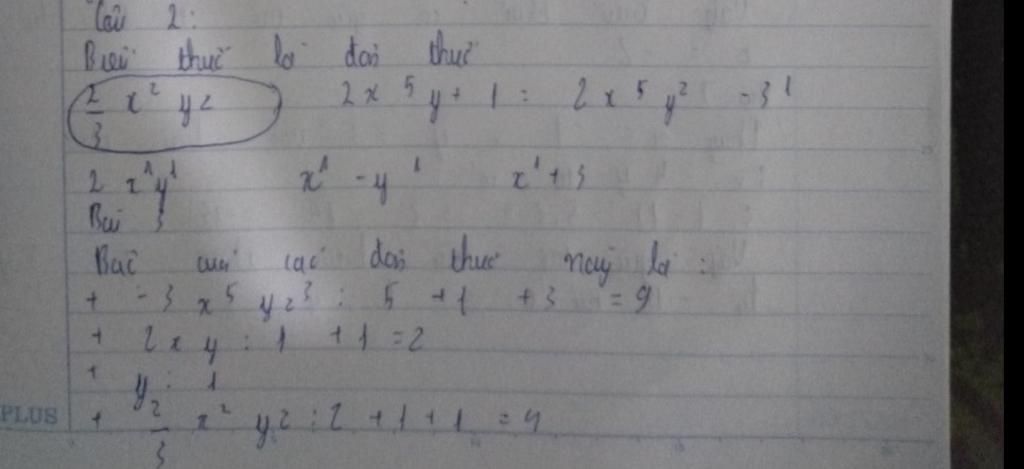 Câu 2:
Biểu thức là đơn thức
2/3 x² yz 2x⁵y + 1 : 2x⁵y² - 3¹
2 x¹y¹ x¹ - y¹ x¹ + 3
Bài 3
Bậc của các đơn thức này là :
+ -3 x⁵ yz³ : 5 + 1 + 3 = 9
+ 2xy : 1 + 1 = 2
+ y : 1
PLUS + 2/3 x² yz : 2 + 1 + 1 = 4